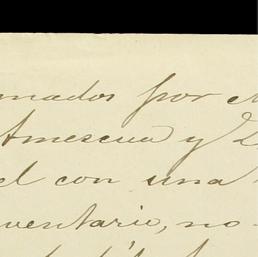 mados por
Amescua y
el con una
ventario, no-